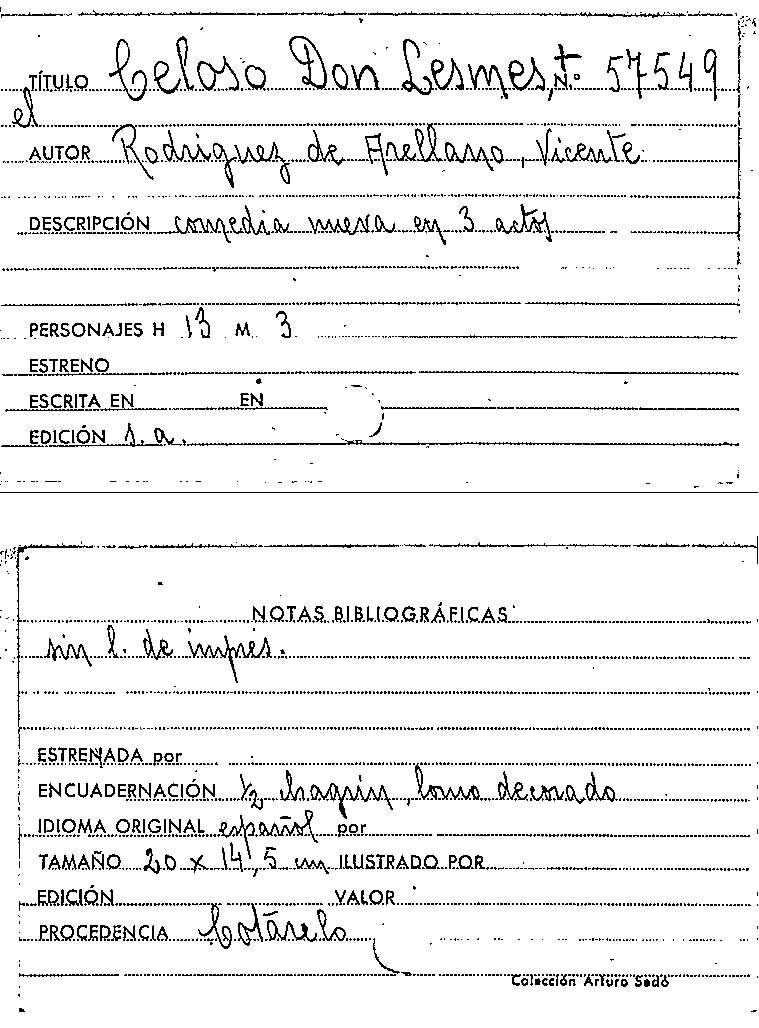 TÍTULO Celoso Don Lesmes, N.º 57549
el
AUTOR Rodriguez de Arellano, Vicente
DESCRIPCIÓN comedia nueva en 3 actos
PERSONAJES H 13 M 3
ESTRENO
ESCRITA EN EN
EDICIÓN s. a.
NOTAS BIBLIOGRÁFICAS
sin l. de impres.
ESTRENADA por
ENCUADERNACIÓN 1/2 chagrin, lomo decorado
IDIOMA ORIGINAL español por
TAMAÑO 20 x 14,5 cm ILUSTRADO POR
EDICIÓN VALOR
PROCEDENCIA Cotarelo
Colección Arturo Sedó